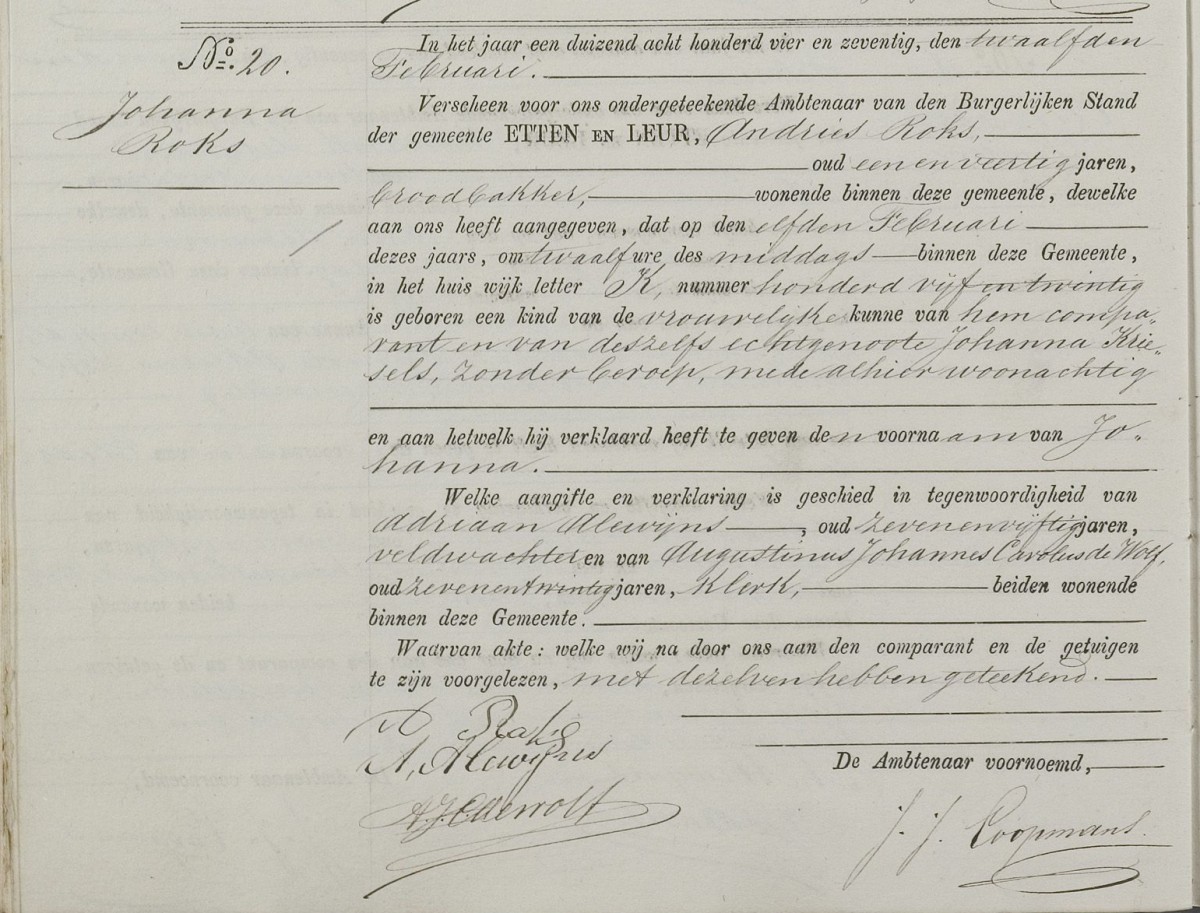 No. 20.
Johanna
Roks
In het jaar een duizend acht honderd vier en zeventig, den twaalfden
Februari.
Verscheen voor ons ondergeteekende Ambtenaar van den Burgerlijken Stand
der gemeente ETTEN EN LEUR, Andries Roks,
oud een en veertig jaren,
broodbakker, wonende binnen deze gemeente, dewelke
aan ons heeft aangegeven, dat op den elfden Februari
dezes jaars, om twaalf ure des middags binnen deze Gemeente,
in het huis wijk letter K, nummer honderd vijf en twintig
is geboren een kind van de vrouwelijke kunne van hem compa„
rant en van deszelfs echtgenoote Johanna Krie„
sels, zonder beroep, mede alhier woonachtig
en aan hetwelk hij verklaard heeft te geven den voornaam van Jo„
hanna.
Welke aangifte en verklaring is geschied in tegenwoordigheid van
Adriaan Alewijns, oud zevenenvijftig jaren,
veldwachter en van Augustinus Johannes Carolus de Wolf,
oud zevenentwintig jaren, klerk, beiden wonende
binnen deze Gemeente.
Waarvan akte: welke wij na door ons aan den comparant en de getuigen
te zijn voorgelezen, met dezelven hebben geteekend.
A Roks
A, Alewijns
De Ambtenaar voornoemd,
A.J.C.dewolf
J. J. Coopmans.